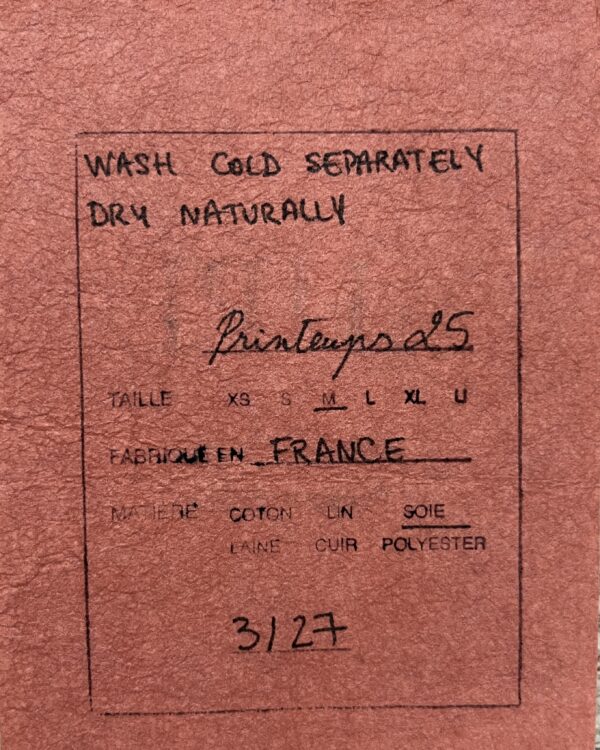 WASH COLD SEPARATELY
DRY NATURALLY
Printemps 25
TAILLE XS S M L XL U
FABRIQUÉ EN FRANCE
MATIÈRE COTON LIN SOIE
LAINE CUIR POLYESTER
3/27